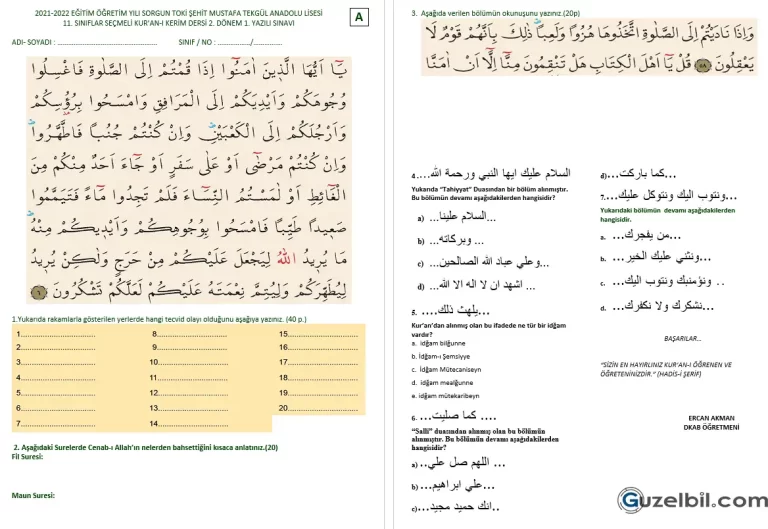 2021-2022 EĞİTİM ÖĞRETİM YILI SORGUN TOKİ ŞEHİT MUSTAFA TEKGÜL ANADOLU LİSESİ
11. SINIFLAR SEÇMELİ KUR'AN-I KERİM DERSİ 2. DÖNEM 1. YAZILI SINAVI
A
ADI- SOYADI : ............................................. SINIF / NO : ............../..............
يَٓا اَيُّهَا الَّذ۪ينَ اٰمَنُٓوا اِذَا قُمْتُمْ اِلَى الصَّلٰوةِ فَاغْسِلُوا
وُجُوهَكُمْ وَاَيْدِيَكُمْ اِلَى الْمَرَافِقِ وَامْسَحُوا بِرُؤُ۫سِكُمْ
وَاَرْجُلَكُمْ اِلَى الْكَعْبَيْنِۜ وَاِنْ كُنْتُمْ جُنُباً فَاطَّهَّرُواۜ
وَاِنْ كُنْتُمْ مَرْضٰٓى اَوْ عَلٰى سَفَرٍ اَوْ جَٓاءَ اَحَدٌ مِنْكُمْ مِنَ
الْغَٓائِطِ اَوْ لٰمَسْتُمُ النِّسَٓاءَ فَلَمْ تَجِدُوا مَٓاءً فَتَيَمَّمُوا
صَع۪يداً طَيِّباً فَامْسَحُوا بِوُجُوهِكُمْ وَاَيْد۪يكُمْ مِنْهُۜ
مَا يُر۪يدُ اللّٰهُ لِيَجْعَلَ عَلَيْكُمْ مِنْ حَرَجٍ وَلٰكِنْ يُر۪يدُ
لِيُطَهِّرَكُمْ وَلِيُتِمَّ نِعْمَتَهُ عَلَيْكُمْ لَعَلَّكُمْ تَشْكُرُونَ ٦
1.Yukarıda rakamlarla gösterilen yerlerde hangi tecvid olayı olduğunu aşağıya yazınız. (40 p.)
1.............................. 8............................ 15............................
2.............................. 9............................ 16............................
3.............................. 10............................ 17............................
4.............................. 11............................ 18............................
5.............................. 12............................ 19............................
6.............................. 13............................ 20............................
7.............................. 14............................
2. Aşağıdaki Surelerde Cenab-ı Allah'ın nelerden bahsettiğini kısaca anlatınız.(20)
Fil Suresi:
Maun Suresi:
3. Aşağıda verilen bölümün okunuşunu yazınız.(20p)
وَاِذَا نَادَيْتُمْ اِلَى الصَّلٰوةِ اتَّخَذُوهَا هُزُواً وَلَعِباًۜ ذٰلِكَ بِاَنَّهُمْ قَوْمٌ لَا
يَعْقِلُونَ ٥٨ قُلْ يَٓا اَهْلَ الْكِتَابِ هَلْ تَنْقِمُونَ مِنَّٓا اِلَّٓا اَنْ اٰمَنَّا
4....السلام عليك ايها النبي ورحمة الله
Yukarıda "Tahiyyat" Duasından bir bölüm alınmıştır.
Bu bölümün devamı aşağıdakilerden hangisidir?
a) ...السلام علينا...
b) ...وبركاته ...
c) ...وعلي عباد الله الصالحين...
d) ...اشهد ان لا اله الا الله ...
5. ....يلهث ذلك...
Kur'an'dan alınmış olan bu ifadede ne tür bir idğam
vardır?
a. idğam bilğunne
b. İdğam-ı Şemsiyye
c. İdğam Mütecaniseyn
d. idğam mealğunne
e. idğam mütekaribeyn
6. ...كما صليت ....
"Salli" duasından alınmış olan bu bölümün
alınmıştır. Bu bölümün devamı aşağıdakilerden
hangisidir?
a) ..اللهم صل علي ...
b) ...علي ابراهيم...
c)...انك حميد مجيد..
d)...كما باركت...
7....ونتوب اليك ونتوكل عليك...
Yukarıdaki bölümün devamı aşağıdakilerden
hangisidir.
a. ...من يفجرك...
b. ...ونثني عليك الخير...
c. ..ونؤمنبك ونتوب اليك ..
d. ...نشكرك ولا نكفرك...
BAŞARILAR...
"SİZİN EN HAYIRLINIZ KUR'AN-I ÖĞRENEN VE
ÖĞRETENİNİZDİR." (HADİS-İ ŞERİF)
ERCAN AKMAN
DKAB ÖĞRETMENİ
Guzelbil.com